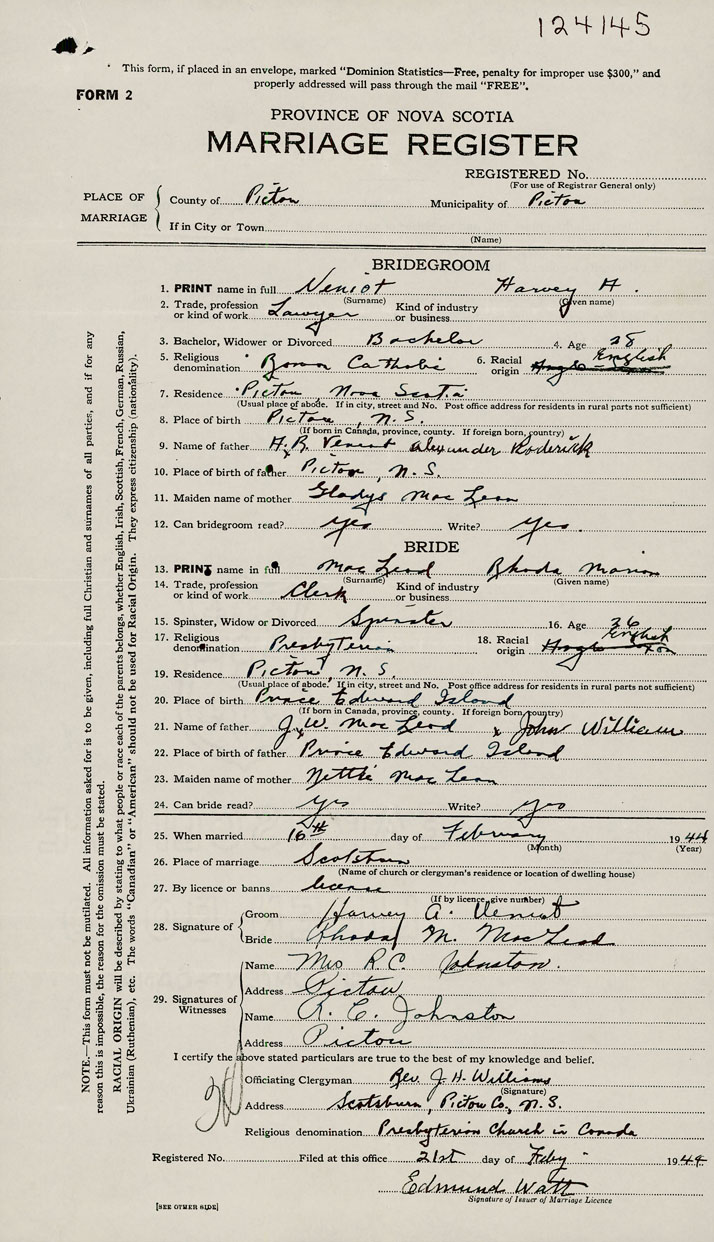 124145
This form, if placed in an envelope, marked “Dominion Statistics—Free, penalty for improper use $300,” and
properly addressed will pass through the mail “FREE”.
FORM 2
PROVINCE OF NOVA SCOTIA
MARRIAGE REGISTER
REGISTERED No.
(For use of Registrar General only)
PLACE OF MARRIAGE
County of Pictou Municipality of Pictou
If in City or Town
(Name)
BRIDEGROOM
1. PRINT name in full Veniot Harvey A.
(Surname) (Given name)
2. Trade, profession or kind of work Lawyer Kind of industry or business
3. Bachelor, Widower or Divorced Bachelor 4. Age 28
5. Religious denomination Roman Catholic 6. Racial origin English
7. Residence Pictou Nova Scotia
(Usual place of abode. If in city, street and No. Post office address for residents in rural parts not sufficient)
8. Place of birth Pictou, N.S.
(If born in Canada, province, county. If foreign born, country)
9. Name of father A. R. Veniot Alexander Roderick
10. Place of birth of father Pictou, N.S.
11. Maiden name of mother Gladys MacLean
12. Can bridegroom read? yes Write? yes.
BRIDE
13. PRINT name in full MacLeod Rhoda Marion
(Surname) (Given name)
14. Trade, profession or kind of work Clerk Kind of industry or business
15. Spinster, Widow or Divorced Spinster 16. Age 26
17. Religious denomination Presbyterian 18. Racial origin English
19. Residence Pictou, N.S.
(Usual place of abode. If in city, street and No. Post office address for residents in rural parts not sufficient)
20. Place of birth Prince Edward Island
(If born in Canada, province, county. If foreign born, country)
21. Name of father J. W. MacLeod x John William
22. Place of birth of father Prince Edward Island
23. Maiden name of mother Nettie MacLean
24. Can bride read? yes Write? yes
25. When married 16th day of February 1944
(Month) (Year)
26. Place of marriage Scotsburn
(Name of church or clergyman's residence or location of dwelling house)
27. By licence or banns license
(If by licence, give number)
28. Signature of
Groom Harvey A. Veniot
Bride Rhoda M. MacLeod
29. Signatures of Witnesses
Name Mrs R.C. Johnston.
Address Pictou
Name R. C. Johnston
Address Pictou
I certify the above stated particulars are true to the best of my knowledge and belief.
Officiating Clergyman Rev. J. H. Williams
(Signature)
Address Scotsburn, Pictou Co., N.S.
Religious denomination Presbyterian Church in Canada
Registered No. Filed at this office 21st day of Feby 1944
Edmund Watt
Signature of Issuer of Marriage Licence
[SEE OTHER SIDE]
NOTE.—This form must not be mutilated. All information asked for is to be given, including full Christian and surnames of all parties, and if for any
reason this is impossible, the reason for the omission must be stated.
RACIAL ORIGIN will be described by stating to what people or race each of the parents belongs, whether English, Irish, Scottish, French, German, Russian,
Ukrainian (Ruthenian), etc. The words “Canadian” or “American” should not be used for Racial Origin. They express citizenship (nationality).